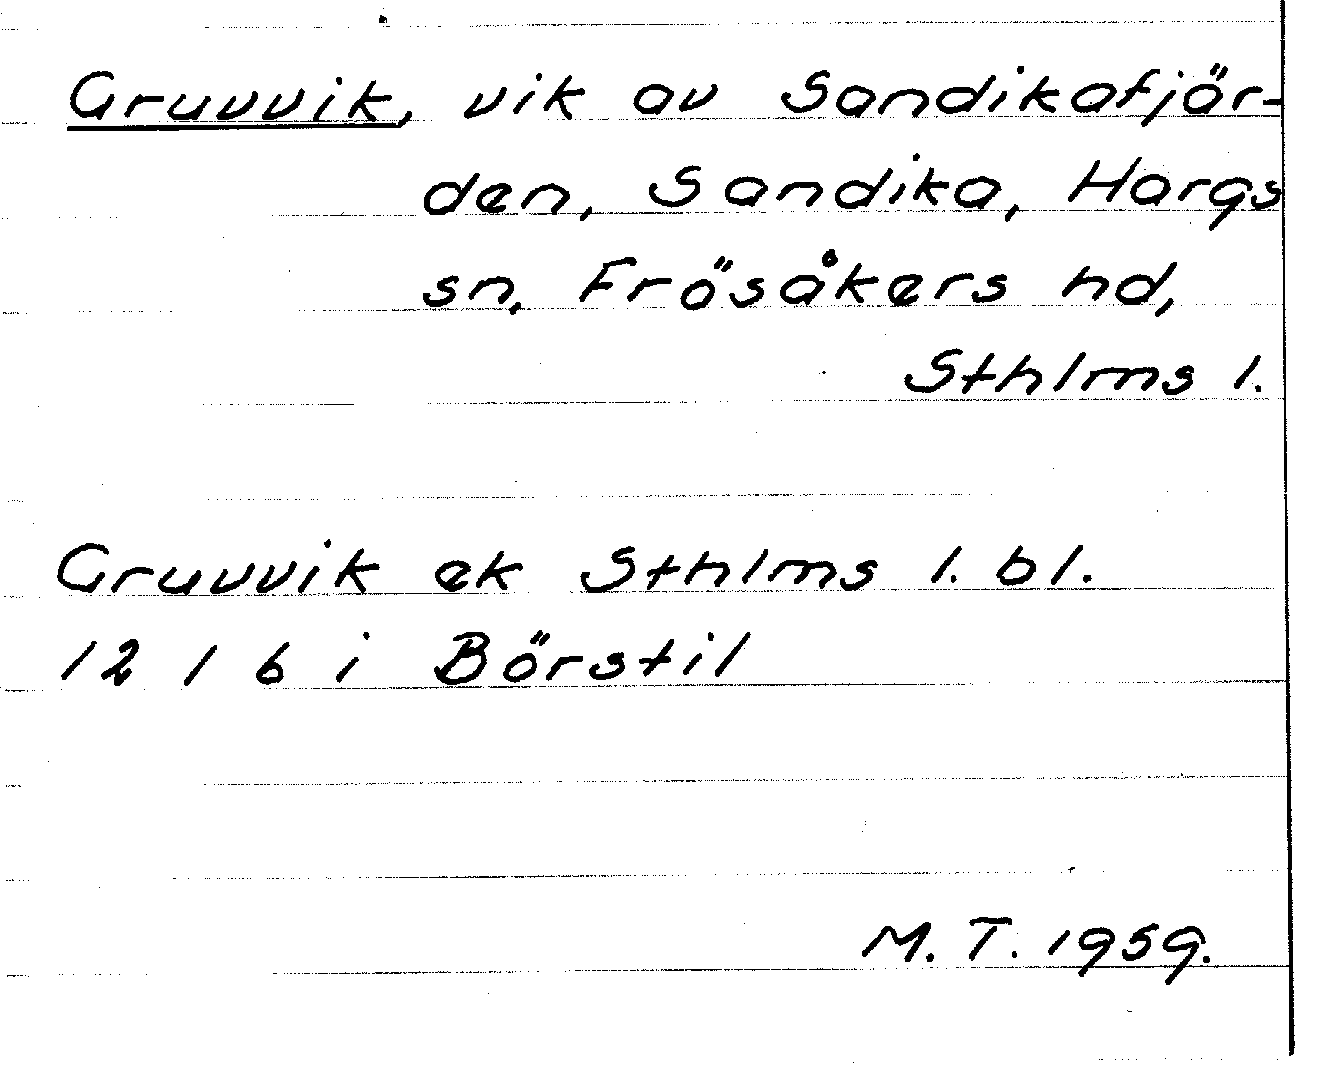 Gruvvik, vik av Sandikafjär-
den, Sandika, Hargs
sn, Frösåkers hd,
Sthlms l.
Gruvvik ek Sthlms l. bl.
12 1 b i Börstil
M. T. 1959.